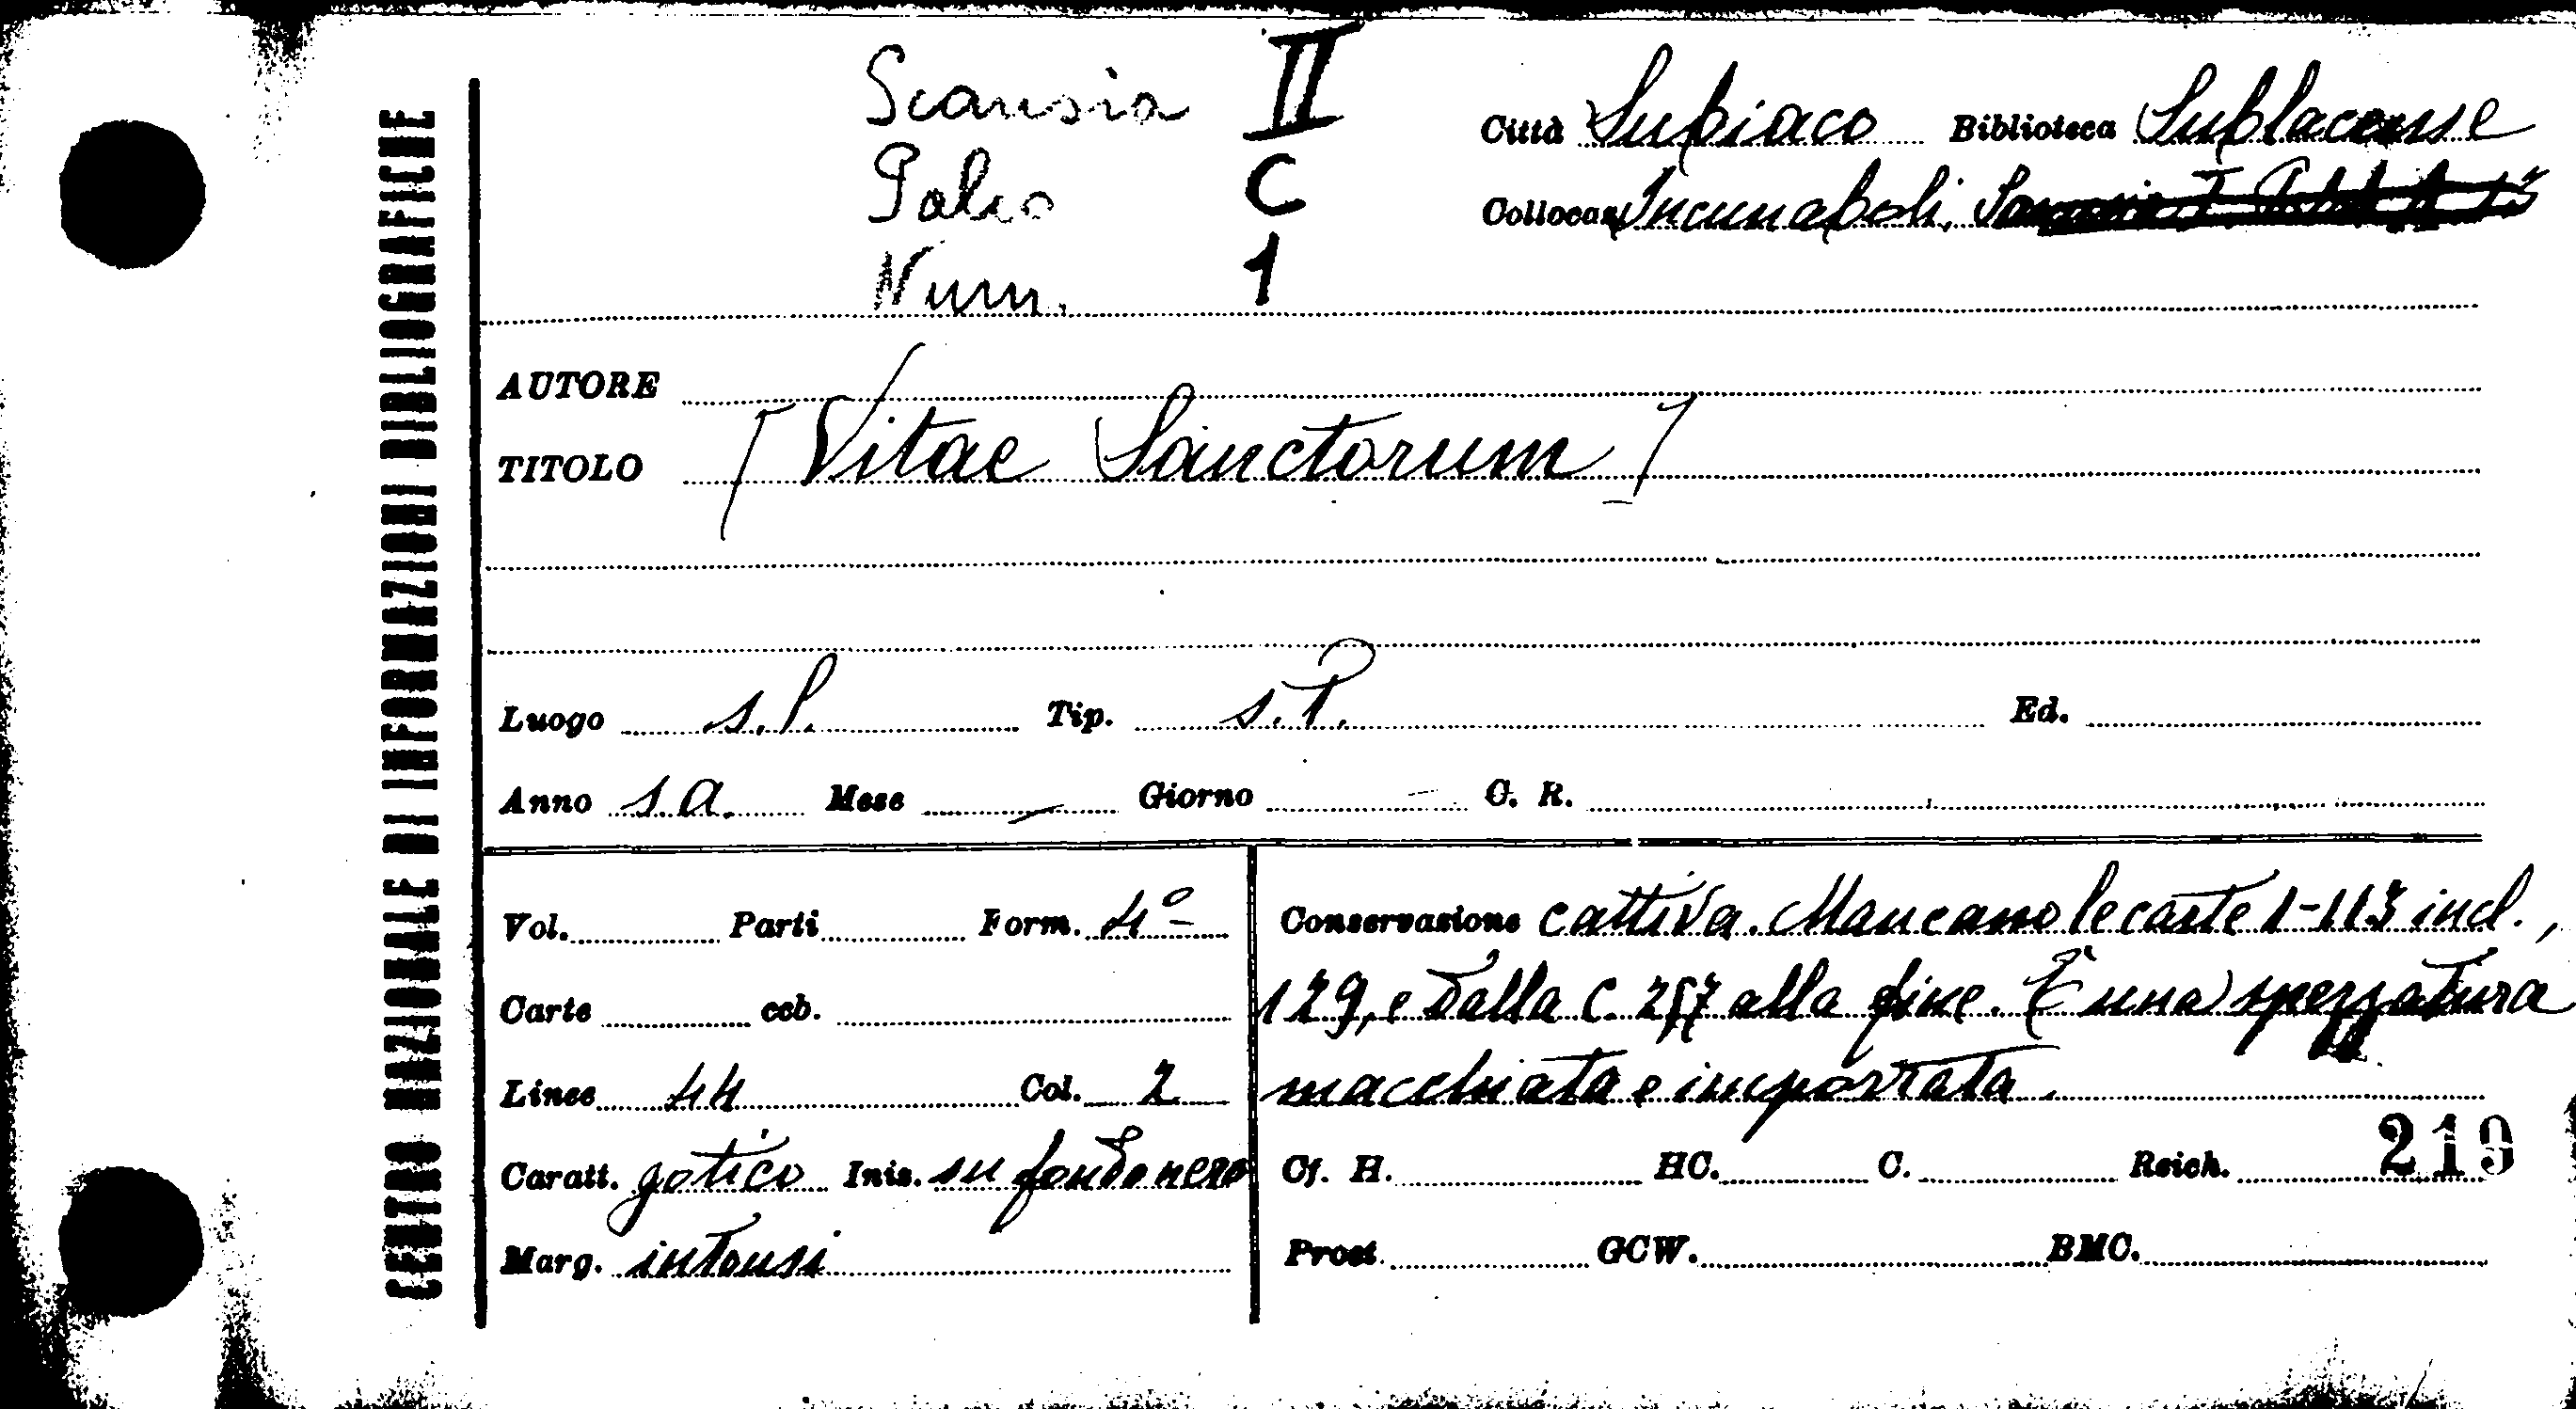 CENTRO NAZIONALE DI INFORMAZIONI BIBLIOGRAFICHE
Scansia II
Palco C
Num. 1
Città Subiaco Biblioteca Sublacense
Collocaz. Incunaboli,
AUTORE
TITOLO [Vitae Sanctorum]
Luogo s.l. Tip. s.T. Ed.
Anno s.a. Mese — Giorno — C. R.
Vol. Parti Form. 4º
Carte ccb.
Linee 44 Col. 2
Caratt. gotico Iniz. su fondo nero
Marg. intonsi
Conservazione cattiva. Mancano le carte 1-113 incl.,
129, e dalla c. 257 alla fine. È una spezzatura
macchiata e imporrata.
Cf. H. HC. C. Reich. 219
Proct. GCW. BMC.